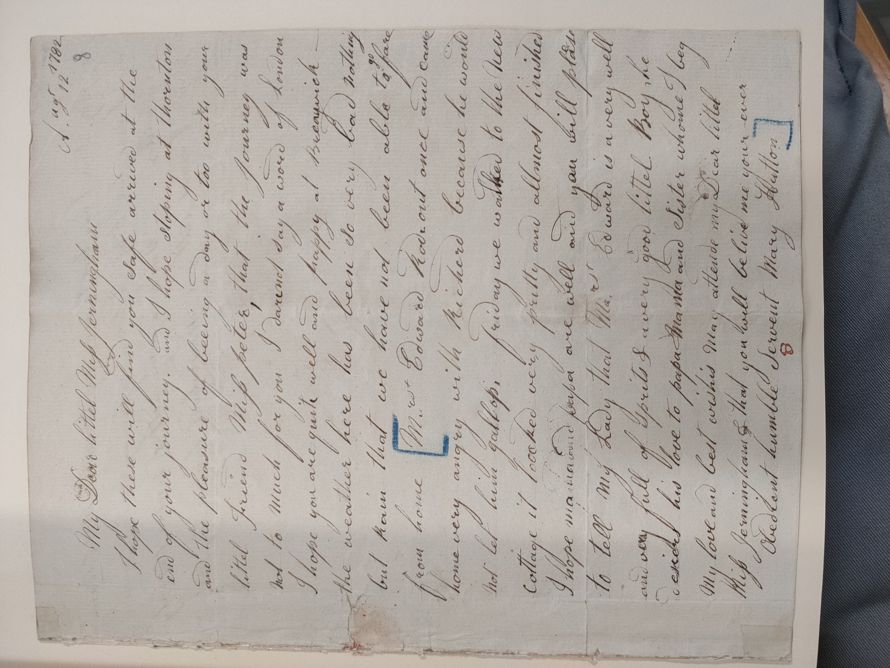 Augt 12 1782
8
My Dear littel Miss Jerningham
I hope these will find you safe arrived at the
end of your journey. and I hope stoping at thornton
and the pleasure of beeing a day or too with your
littel friend Miss peter, that the journey was
not to much for you I dare not say a word of London
I hope you are quit well and happy at
the weather here has been so very bad nothing
but Rain that we have not been able to go fare
from home [Mr Edward Rod out once and came
home very angry with Richerd because he would
not let him gallop, friday we walked to the new
cottage it loocked very pritty and allmost finished
I hope mama and papa are well and you will pleas
to tell my Lady that Mas.r Edward is a very well
and very full of sprits & a very good littel Boy, he
desiers his love to papa Mama and Sister whome I beg
My love and best wishis may attende my Dear littel
Miss Jerningham & that you will belive me your ever
Obedient humble Servent Mary Hutton]
8